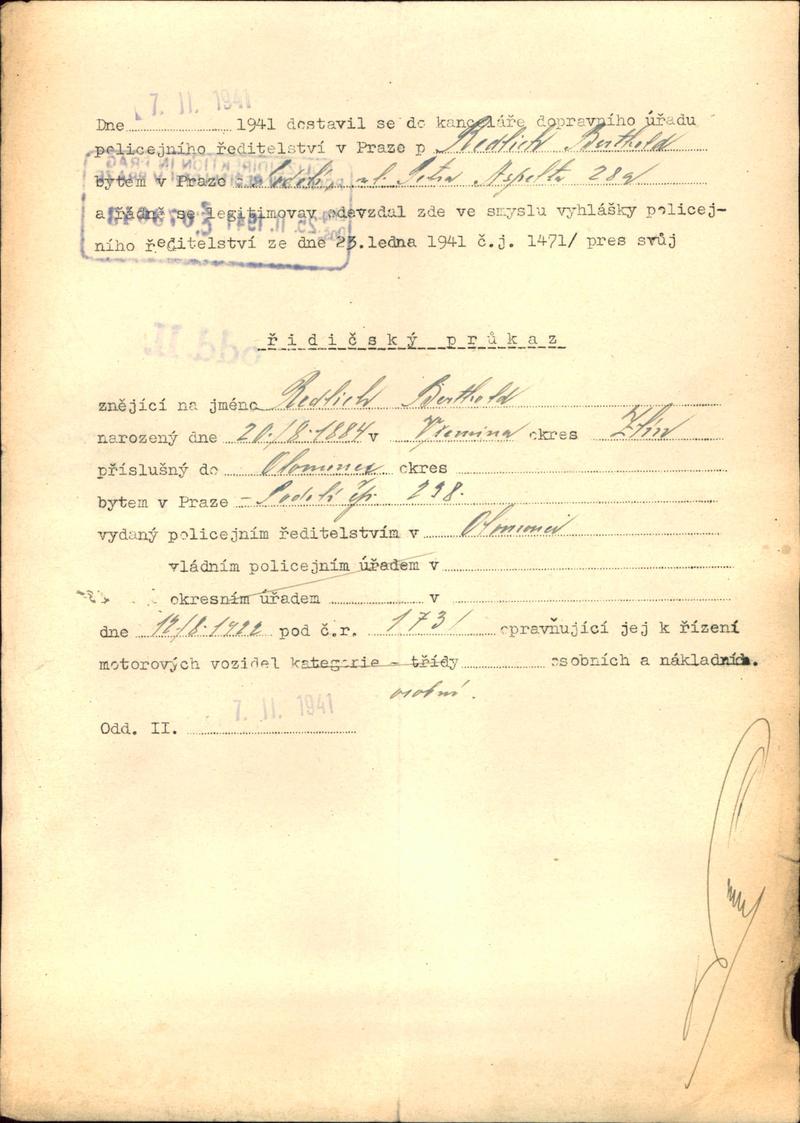 7. II. 1941
Dne 1941 dostavil se do kanceláře dopravního úřadu
policejního ředitelství v Praze p Redlich Berthold
bytem v Praze - Podolí, ul. Petra Aspelta 289
a řádně se legitimovav odevzdal zde ve smyslu vyhlášky policej-
ního ředitelství ze dne 23.ledna 1941 č.j. 1471/ pres svůj
odd. II.
řidičský průkaz
znějící na jméno Redlich Berthold
narozený dne 20./8.1884 v okres Zlín
příslušný do Olomouc okres
bytem v Praze - Podolí čp. 298.
vydaný policejním ředitelstvím v Olomouci
vládním policejním úřadem v
okresním úřadem v
dne 12/8.1922 pod č.r. 173/ opravňující jej k řízení
motorových vozidel kategorie - třídy osobních a nákladních.
osobní.
7. II. 1941
Odd. II.